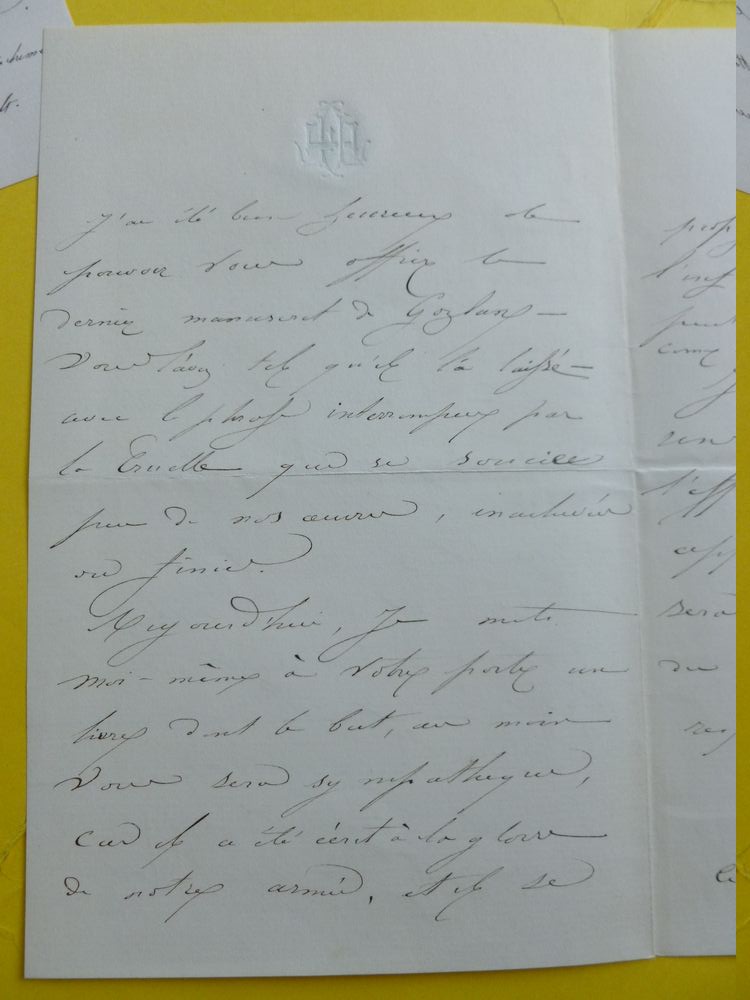 J'ai été bien heureux de
pouvoir vous offrir le
dernier manuscrit de Gozlan —
Vous l'avez tel qu'il l'a laissé —
avec la phrase interrompue par
la Cruelle qui se soucie
peu de nos œuvres, inachevées
ou finies.
Aujourd'hui, je mets
moi-même à votre porte un
livre dont le but, au moins
vous sera sympathique,
car il a été écrit à la gloire
de notre armée, et il se
prop
l'inf
peut
comme
l'eff
sera
du